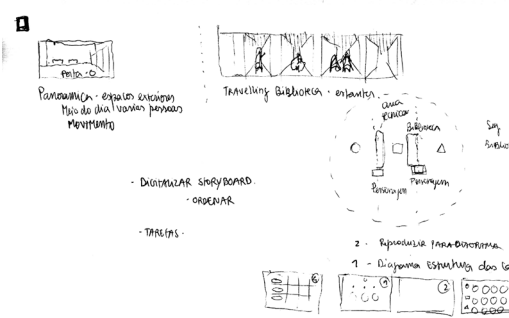 PORTA
Panoramica - espaços exteriores
Meio do dia varias pessoas
MOVIMENTO
TRAVELLING Biblioteca - estantes.
area
tecnica
Biblioteca
Personagem
Personagem
- DIGITALIZAR STORYBOARD.
- ORDENAR
- TAREFAS -
2 - Reproduzir PARA DIAGRAMA
1 - Diagrama Estrutura das
1
2